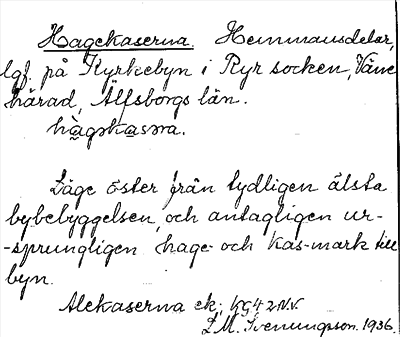 Hagekaserna. Hemmansdelar,
lgf. på Kyrkebyn i Ryr socken, Väne
härad, Älfsborgs län.
Läge öster från tydligen älsta
bybebyggelsen, och antagligen ur-
-sprungligen hage- och kas-mark till
byn.
Alekaserna ek;
D.M. Svenungsson. 1936.